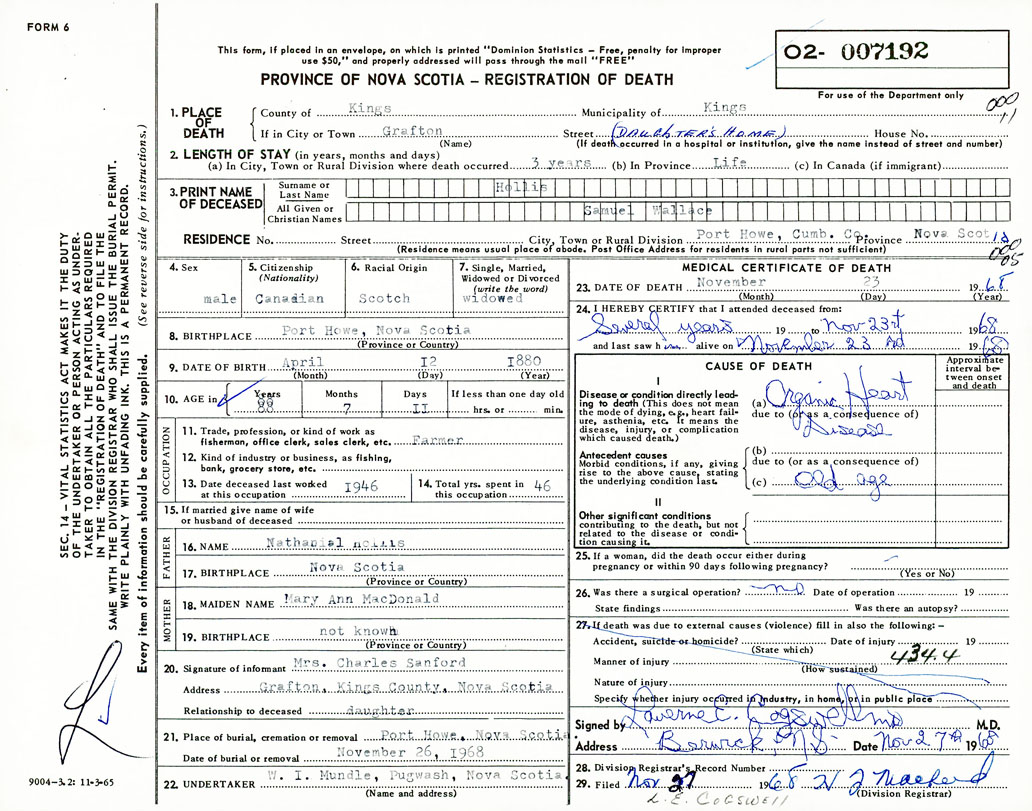 FORM 6
This form, if placed in an envelope, on which is printed "Dominion Statistics – Free, penalty for improper
use $50," and properly addressed will pass through the mail "FREE"
PROVINCE OF NOVA SCOTIA – REGISTRATION OF DEATH
02- 007192
For use of the Department only
000
11
1. PLACE OF DEATH
County of Kings Municipality of Kings
If in City or Town Grafton Street (DAUGHTER'S HOME) House No.
(Name) (If death occurred in a hospital or institution, give the name instead of street and number)
2. LENGTH OF STAY (in years, months and days)
(a) In City, Town or Rural Division where death occurred 3 years (b) In Province Life (c) In Canada (if immigrant)
3. PRINT NAME OF DECEASED
Surname or Last Name Hollis
All Given or Christian Names Samuel Wallace
RESIDENCE No. Street City, Town or Rural Division Port Howe, Cumb. Co. Province Nova Scotia
(Residence means usual place of abode. Post Office Address for residents in rural parts not sufficient)
000
05
4. Sex
male
5. Citizenship
(Nationality)
Canadian
6. Racial Origin
Scotch
7. Single, Married,
Widowed or Divorced
(write the word)
widowed
8. BIRTHPLACE Port Howe, Nova Scotia
(Province or Country)
9. DATE OF BIRTH April 12 1880
(Month) (Day) (Year)
10. AGE in Years Months Days If less than one day old
88 7 11 hrs. or min.
OCCUPATION
11. Trade, profession, or kind of work as
fisherman, office clerk, sales clerk, etc. Farmer
12. Kind of industry or business, as fishing,
bank, grocery store, etc.
13. Date deceased last worked
at this occupation 1946
14. Total yrs. spent in
this occupation 46
15. If married give name of wife
or husband of deceased
FATHER
16. NAME Nathanial Hollis
17. BIRTHPLACE Nova Scotia
(Province or Country)
MOTHER
18. MAIDEN NAME Mary Ann MacDonald
19. BIRTHPLACE not known
(Province or Country)
20. Signature of informant Mrs. Charles Sanford
Address Grafton, Kings County, Nova Scotia
Relationship to deceased daughter
21. Place of burial, cremation or removal Port Howe, Nova Scotia
Date of burial or removal November 26, 1968
22. UNDERTAKER W. I. Mundle, Pugwash, Nova Scotia.
(Name and address)
MEDICAL CERTIFICATE OF DEATH
23. DATE OF DEATH November 23 1968
(Month) (Day) (Year)
24. I HEREBY CERTIFY that I attended deceased from:
Several years 19 to Nov 23rd 1968
and last saw him alive on November 23rd 1968
CAUSE OF DEATH
Approximate
interval be-
tween onset
and death
I
Disease or condition directly lead-
ing to death (This does not mean
the mode of dying, e.g., heart fail-
ure, asthenia, etc. It means the
disease, injury, or complication
which caused death.)
(a) Organic Heart
due to (or as a consequence of)
Disease
Antecedent causes
Morbid conditions, if any, giving
rise to the above cause, stating
the underlying condition last.
(b)
due to (or as a consequence of)
(c) Old age
II
Other significant conditions
contributing to the death, but not
related to the disease or condi-
tion causing it.
25. If a woman, did the death occur either during
pregnancy or within 90 days following pregnancy?
(Yes or No)
26. Was there a surgical operation? no Date of operation 19
State findings Was there an autopsy?
27. If death was due to external causes (violence) fill in also the following: –
Accident, suicide or homicide? Date of injury 19
(State which)
434.4
Manner of injury
(How sustained)
Nature of injury
Specify whether injury occurred in industry, in home, or in public place
Signed by Laverne E. Cogswell md M.D.
Address Berwick, N.S. Date Nov 27th 1968
28. Division Registrar's Record Number
29. Filed Nov 27 1968
(Division Registrar)
L. E. COGSWELL
SEC. 14 – VITAL STATISTICS ACT MAKES IT THE DUTY
OF THE UNDERTAKER OR PERSON ACTING AS UNDER-
TAKER TO OBTAIN ALL THE PARTICULARS REQUIRED
IN THE "REGISTRATION OF DEATH" AND TO FILE THE
SAME WITH THE DIVISION REGISTRAR WHO SHALL ISSUE THE BURIAL PERMIT.
WRITE PLAINLY WITH UNFADING INK. THIS IS A PERMANENT RECORD.
Every item of information should be carefully supplied. (See reverse side for instructions.)
9004-3.2: 11-3-65